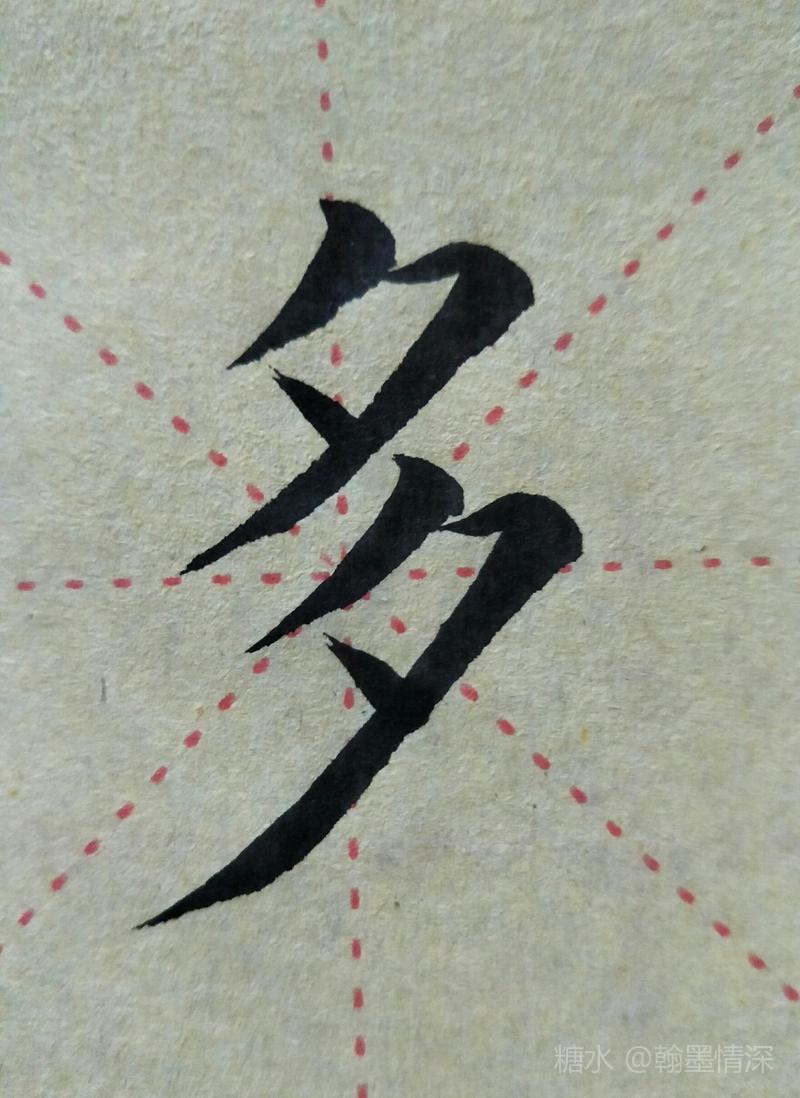 多
糖水 @翰墨情深